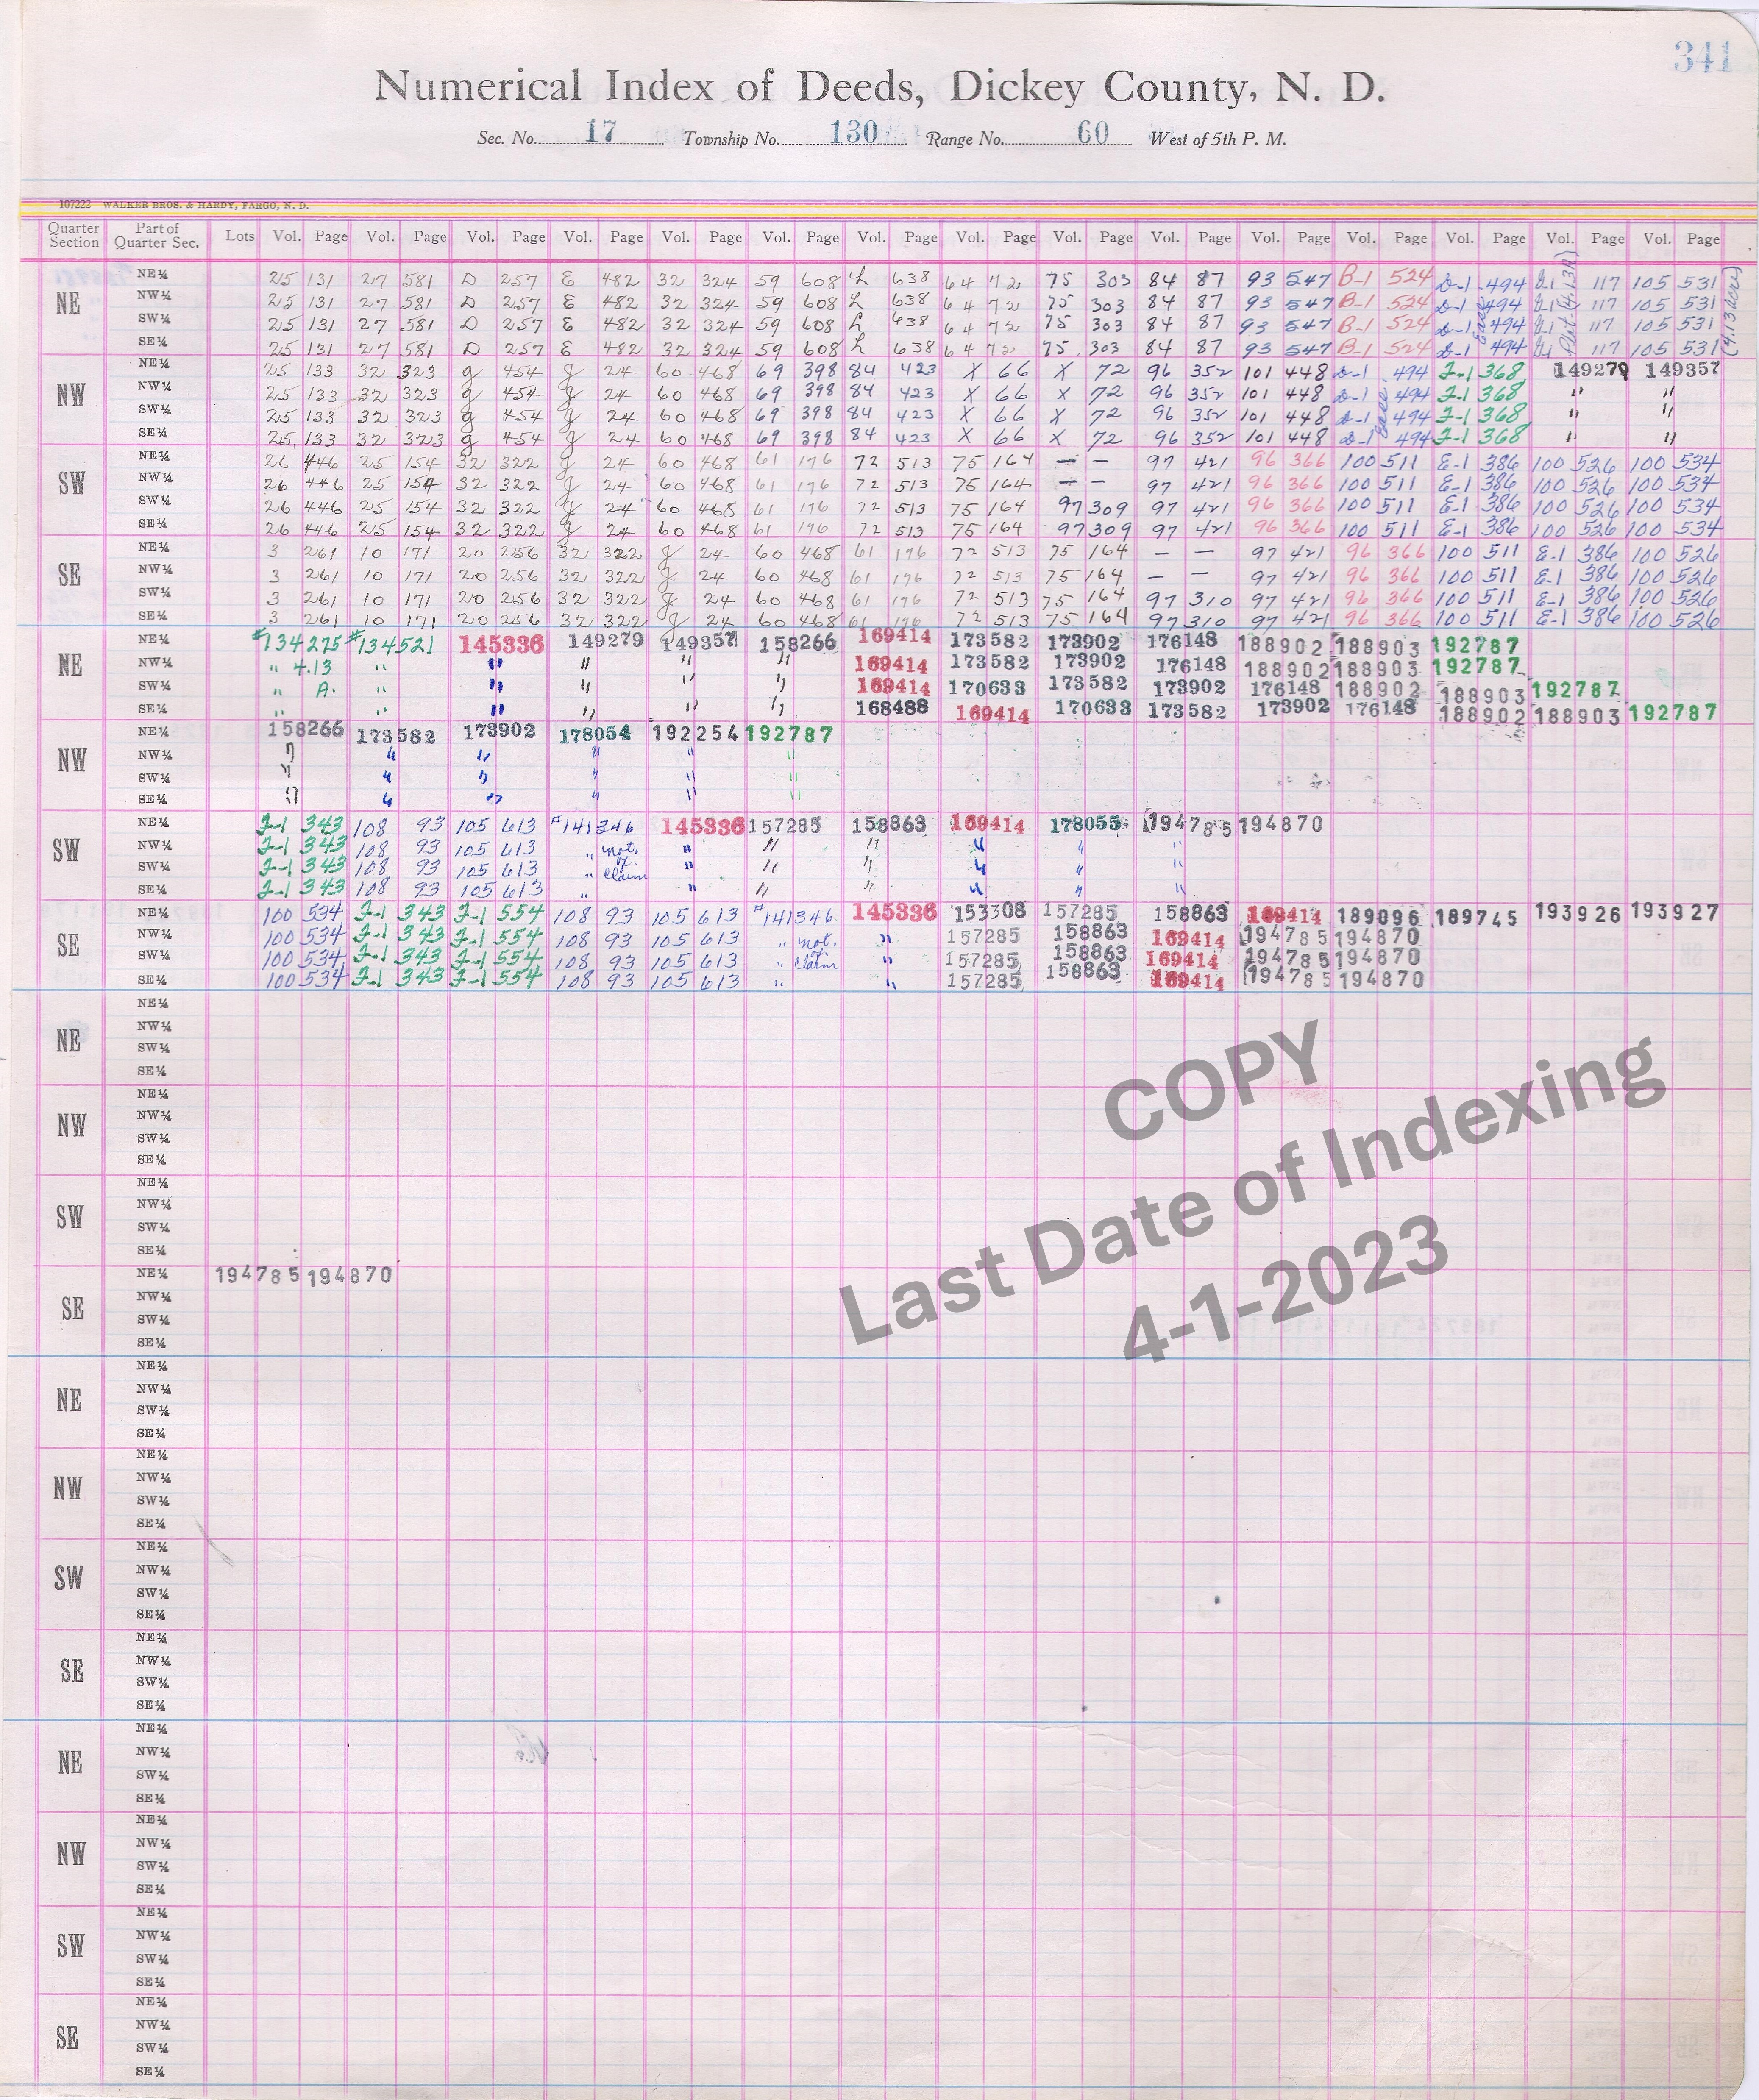 341
Numerical Index of Deeds, Dickey County, N. D.
Sec. No. 17 Township No. 130 Range No. 60 West of 5th P. M.
107222 WALKER BROS. & HARDY, FARGO, N. D.
Quarter Section Part of Quarter Sec. Lots Vol. Page Vol. Page Vol. Page Vol. Page Vol. Page Vol. Page Vol. Page Vol. Page Vol. Page Vol. Page Vol. Page Vol. Page Vol. Page Vol. Page Vol. Page
NE
NE¼ 25 131 27 581 D 257 E 482 32 324 59 608 L 638 64 72 75 303 84 87 93 547 B-1 524 D-1 494 117 105 531
NW¼ 25 131 27 581 D 257 E 482 32 324 59 608 L 638 64 72 75 303 84 87 93 547 B-1 524 D-1 494 117 105 531
SW¼ 25 131 27 581 D 257 E 482 32 324 59 608 L 638 64 72 75 303 84 87 93 547 B-1 524 D-1 494 117 105 531
SE¼ 25 131 27 581 D 257 E 482 32 324 59 608 L 638 64 72 75 303 84 87 93 547 B-1 524 D-1 494 117 105 531
NW
NE¼ 25 133 32 323 g 454 g 24 60 468 69 398 84 423 X 66 X 72 96 352 101 448 D-1 494 J-1 368 149279 149357
NW¼ 25 133 32 323 g 454 g 24 60 468 69 398 84 423 X 66 X 72 96 352 101 448 D-1 494 J-1 368 " "
SW¼ 25 133 32 323 g 454 g 24 60 468 69 398 84 423 X 66 X 72 96 352 101 448 D-1 494 J-1 368 " "
SE¼ 25 133 32 323 g 454 g 24 60 468 69 398 84 423 X 66 X 72 96 352 101 448 D-1 494 J-1 368 " "
SW
NE¼ 26 446 25 154 32 322 g 24 60 468 61 196 72 513 75 164 — — 97 421 96 366 100 511 E-1 386 100 526 100 534
NW¼ 26 446 25 154 32 322 g 24 60 468 61 196 72 513 75 164 — — 97 421 96 366 100 511 E-1 386 100 526 100 534
SW¼ 26 446 25 154 32 322 g 24 60 468 61 196 72 513 75 164 97 309 97 421 96 366 100 511 E-1 386 100 526 100 534
SE¼ 26 446 25 154 32 322 g 24 60 468 61 196 72 513 75 164 97 309 97 421 96 366 100 511 E-1 386 100 526 100 534
SE
NE¼ 3 261 10 171 20 256 32 322 g 24 60 468 61 196 72 513 75 164 — — 97 421 96 366 100 511 E-1 386 100 526
NW¼ 3 261 10 171 20 256 32 322 g 24 60 468 61 196 72 513 75 164 — — 97 421 96 366 100 511 E-1 386 100 526
SW¼ 3 261 10 171 20 256 32 322 g 24 60 468 61 196 72 513 75 164 97 310 97 421 96 366 100 511 E-1 386 100 526
SE¼ 3 261 10 171 20 256 32 322 g 24 60 468 61 196 72 513 75 164 97 310 97 421 96 366 100 511 E-1 386 100 526
NE
NE¼ #134275 #134521 145336 149279 149357 158266 169414 173582 173902 176148 188902 188903 192787
NW¼ " 4.13 " " " " " 169414 173582 173902 176148 188902 188903 192787
SW¼ " A. " " " " " 169414 170633 173582 173902 176148 188902 188903 192787
SE¼ " " " " " " 168488 169414 170633 173582 173902 176148 188902 188903 192787
NW
NE¼ 158266 173582 173902 178054 192254 192787
NW¼ " " " " " "
SW¼ " " " " " "
SE¼ " " " " " "
SW
NE¼ J-1 343 108 93 105 613 #141346 145336 157285 158863 169414 178055 194785 194870
NW¼ J-1 343 108 93 105 613 " not. " " " " " "
SW¼ J-1 343 108 93 105 613 " of claim " " " " " "
SE¼ J-1 343 108 93 105 613 " " " " " " "
SE
NE¼ 100 534 J-1 343 J-1 554 108 93 105 613 #141346 145336 153308 157285 158863 169414 189096 189745 193926 193927
NW¼ 100 534 J-1 343 J-1 554 108 93 105 613 " not. " 157285 158863 169414 194785 194870
SW¼ 100 534 J-1 343 J-1 554 108 93 105 613 " of claim " 157285 158863 169414 194785 194870
SE¼ 100 534 J-1 343 J-1 554 108 93 105 613 " " 157285 158863 169414 194785 194870
NE
NE¼
NW¼
SW¼
SE¼
NW
NE¼
NW¼
SW¼
SE¼
SW
NE¼
NW¼
SW¼
SE¼
SE
NE¼ 194785 194870
NW¼
SW¼
SE¼
COPY
Last Date of Indexing
4-1-2023
NE
NE¼
NW¼
SW¼
SE¼
NW
NE¼
NW¼
SW¼
SE¼
SW
NE¼
NW¼
SW¼
SE¼
SE
NE¼
NW¼
SW¼
SE¼
NE
NE¼
NW¼
SW¼
SE¼
NW
NE¼
NW¼
SW¼
SE¼
SW
NE¼
NW¼
SW¼
SE¼
SE
NE¼
NW¼
SW¼
SE¼